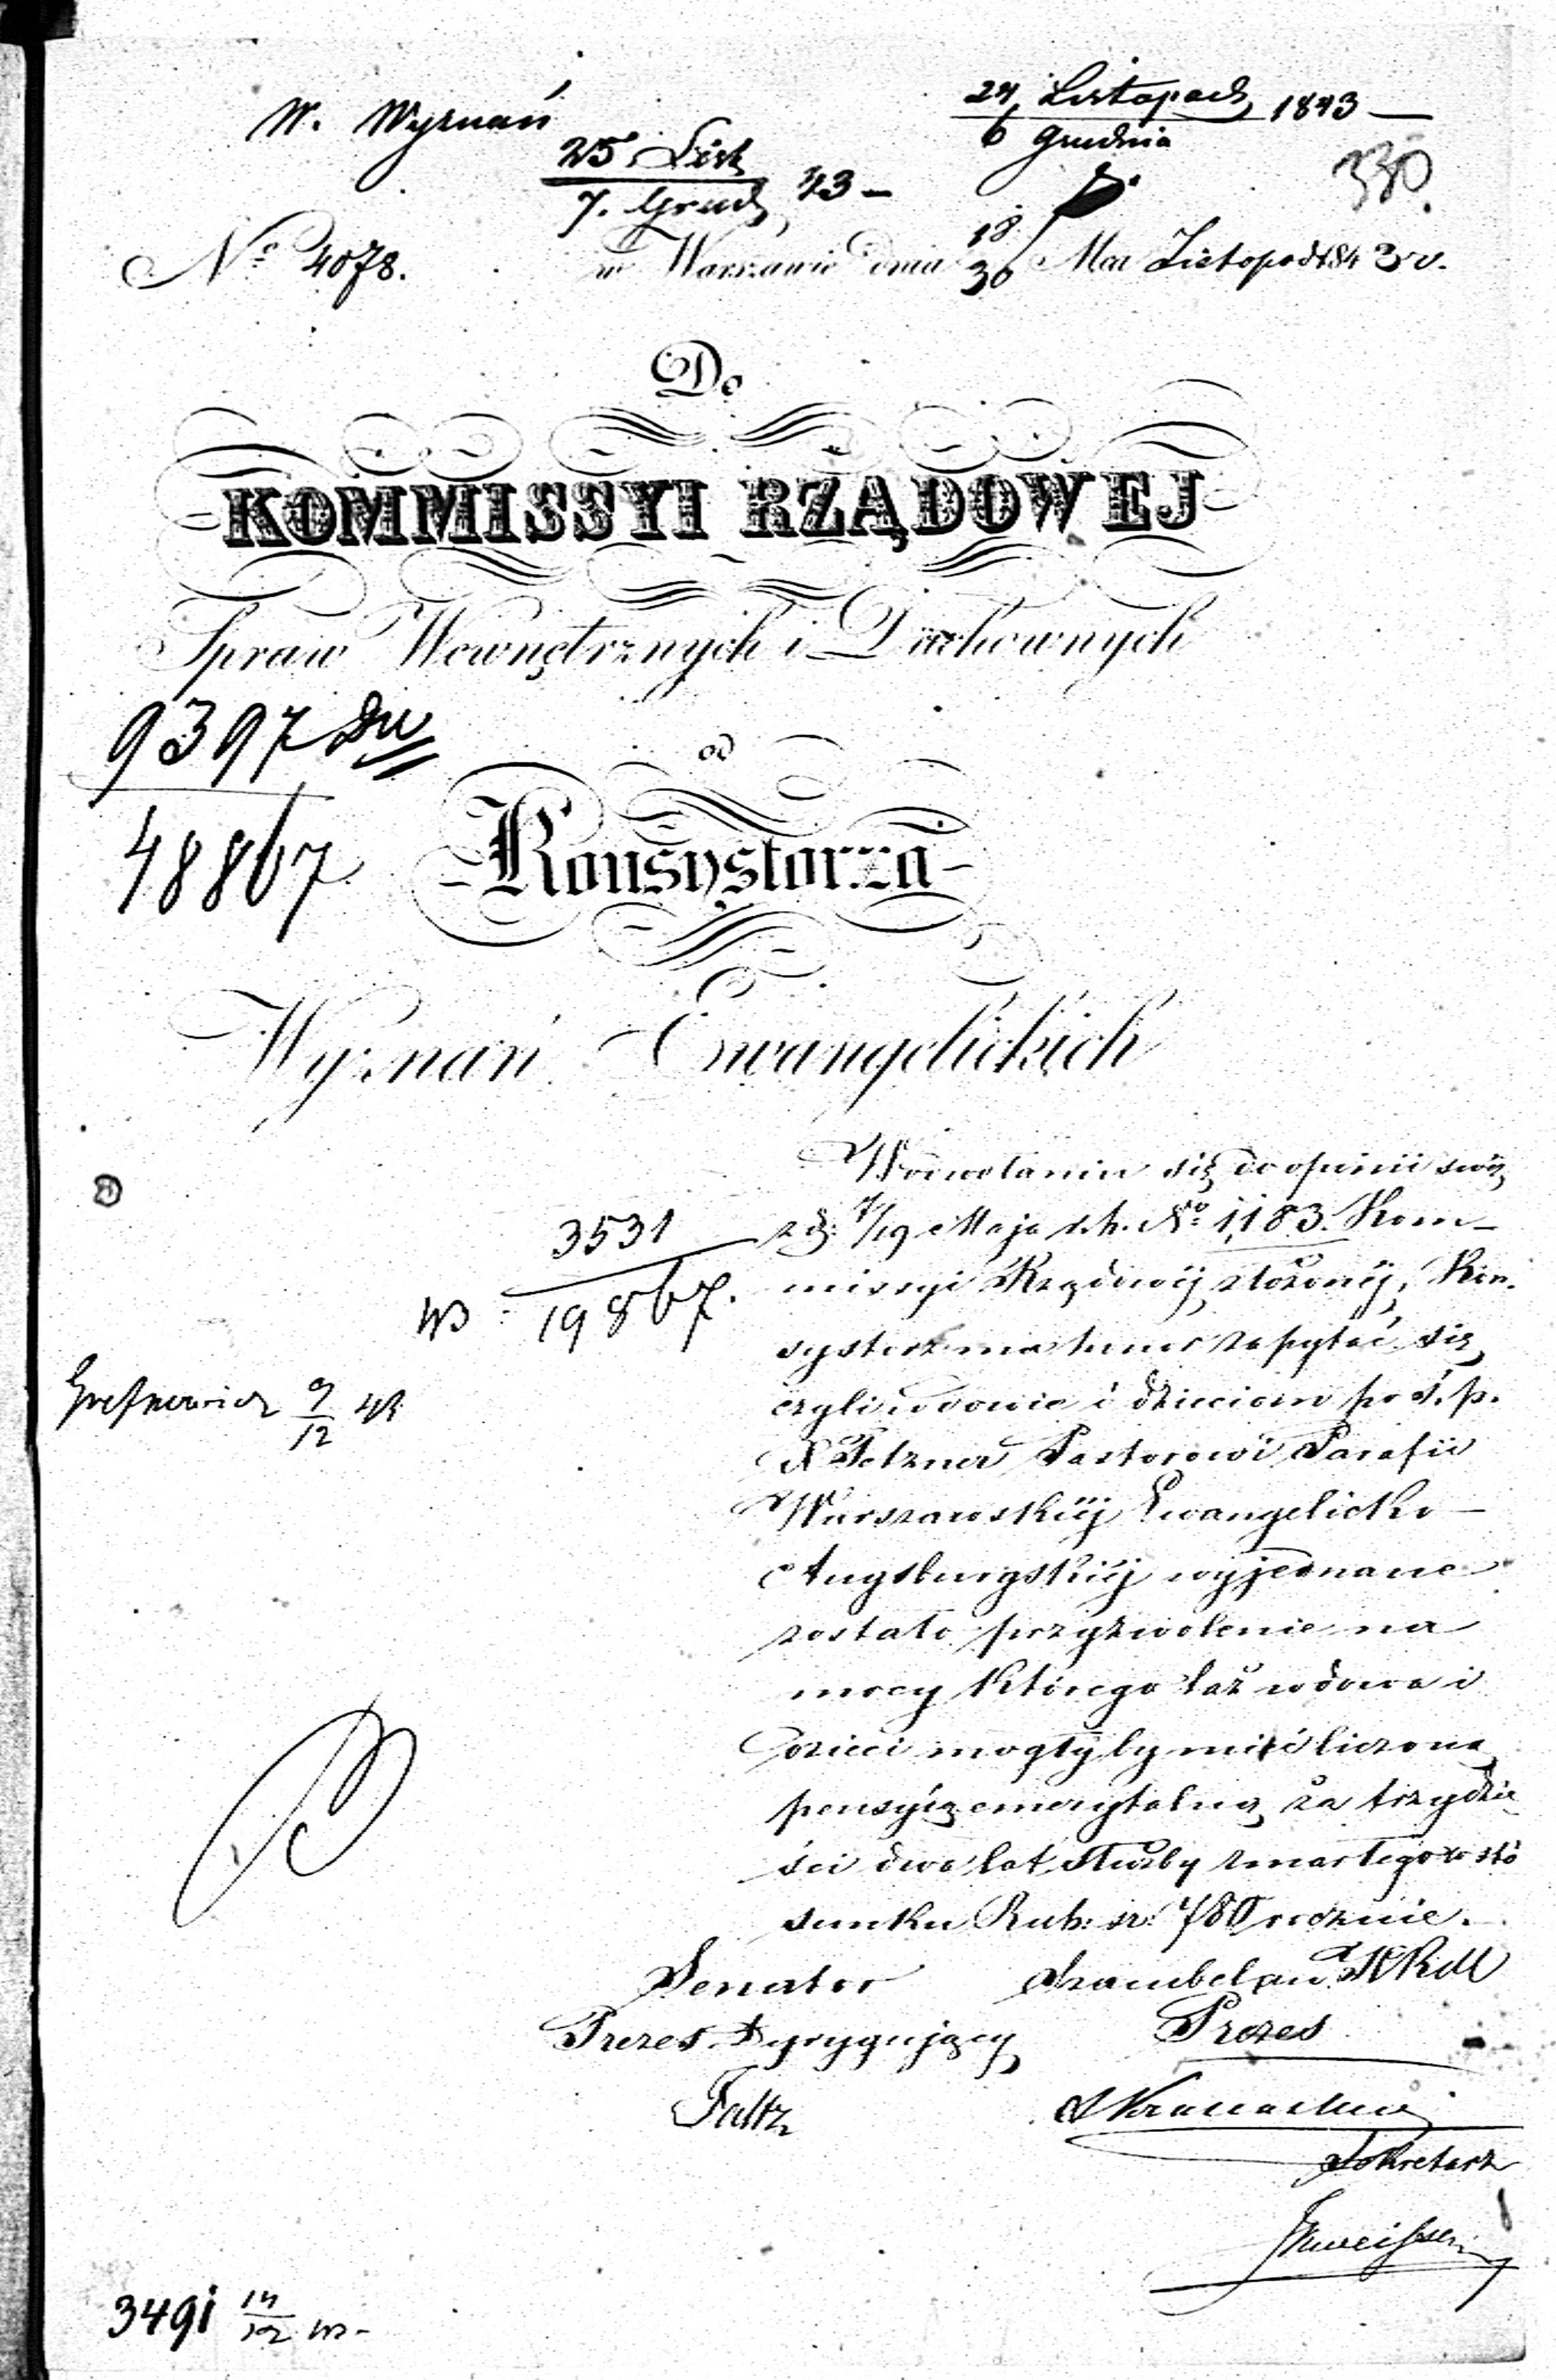 W. Wyznań
24 Listopada 1843 —
6 Grudnia
25 List
7. Grud 43 —
330.
No 4078. w Warszawie dnia 18/30 Mca Listopad 1843 r.
Do
KOMMISSYI RZĄDOWEJ
Spraw Wewnętrznych i Duchownych
9397 Dw
48867
od
Konsystorza
Wyznań Ewangelickich
W odwołaniu się do opinii swéj
z d: 7/19 Maja r. b. No 1183. Kom-
missyi Rządowéj złożonéj, Kon-
systorz ma honor zapytać się
czyli wdowie i dzieciom po ś. p.
X Tetzner Pastorowi Parafii
Warszawskiéj Ewangelicko-
Augsburgskiéj wyjednane
zostało przyzwolenie na
mocy którego taż wdowa i
dzieci mogłyby mieć liczoną
pensyię emerytalną za trzydzie
ści dwa lat służby zmarłego w sto
sunku Rub: sr: 780 rocznie.
3531
19867.
9/12 43
Senator
Prezes Dyrygujący
Faltz
Szambelan JKRM
Prezes
Sekretarz
3491 14/12